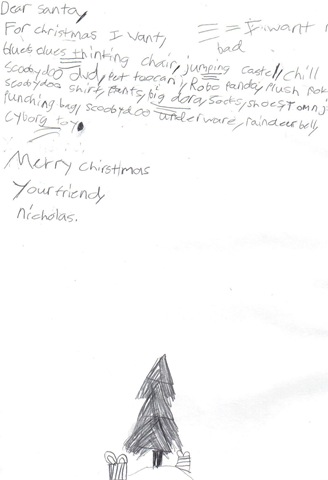 Dear santa,
For christmas I want, = I want
bad
blues clues thinking chair, jumping castel, chill
scoobydoo dvd, pet toocan, Robo panda, Plush
scoobydoo shirt, pants, big dora, socks, shoes, Tom n j
punching bag, scoobydoo underware, raindeer bell,
cyborg toy
Merry Chirstmas
Your friend,
nicholas.